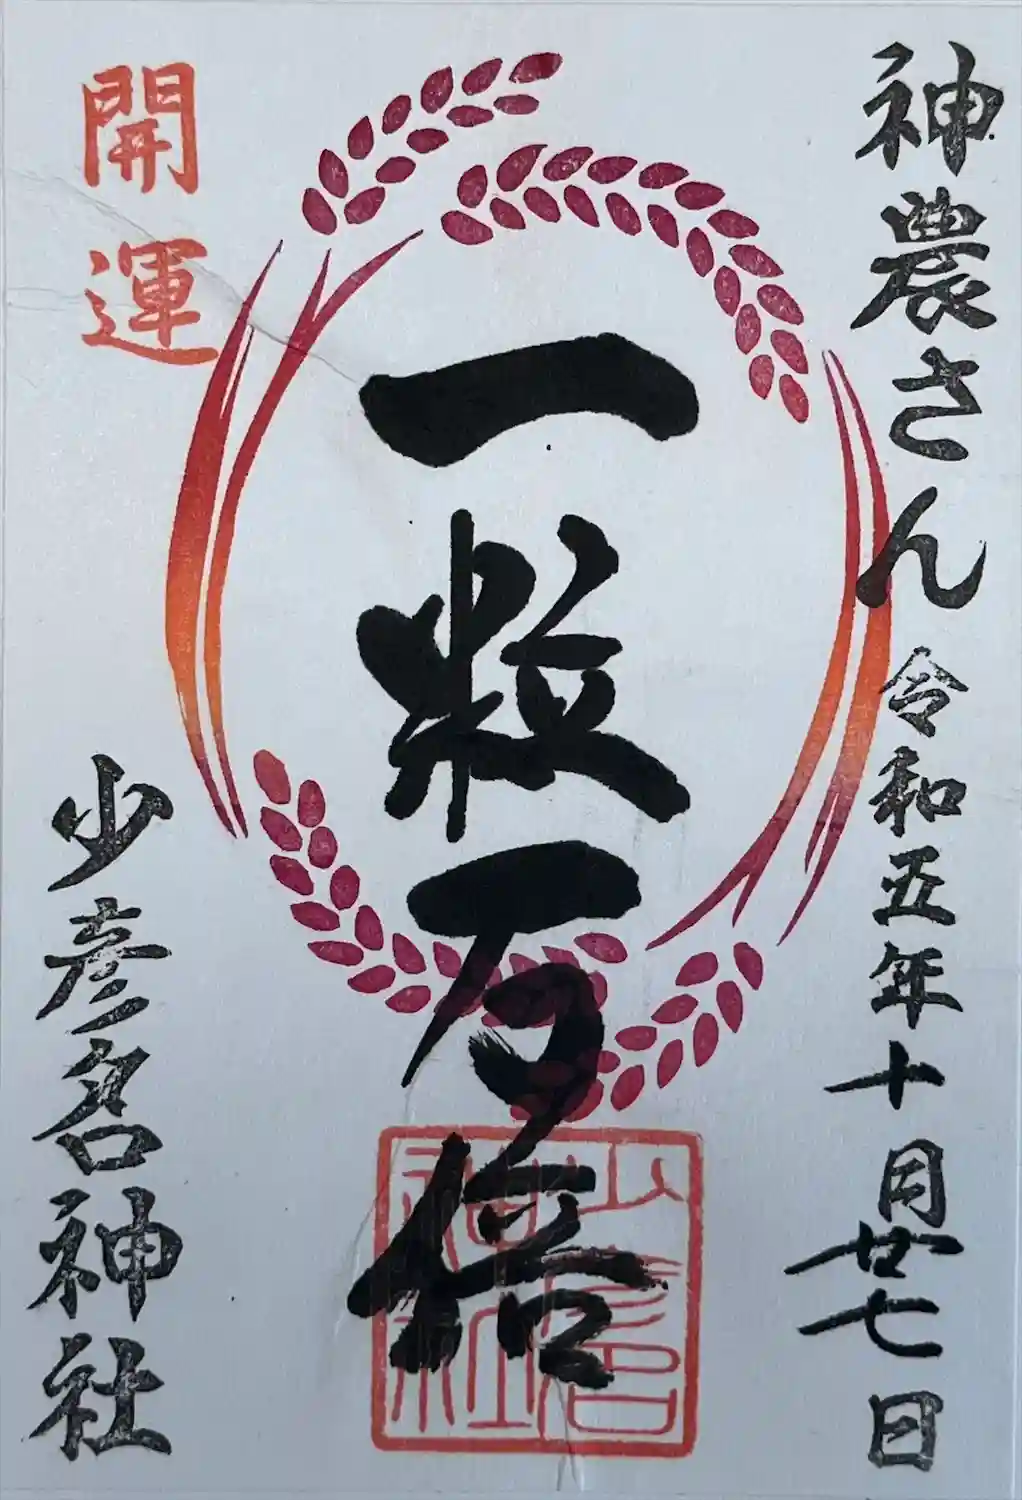 神農さん 令和五年十月廿七日
一粒万倍
開運
少彦名神社
少彦名神社